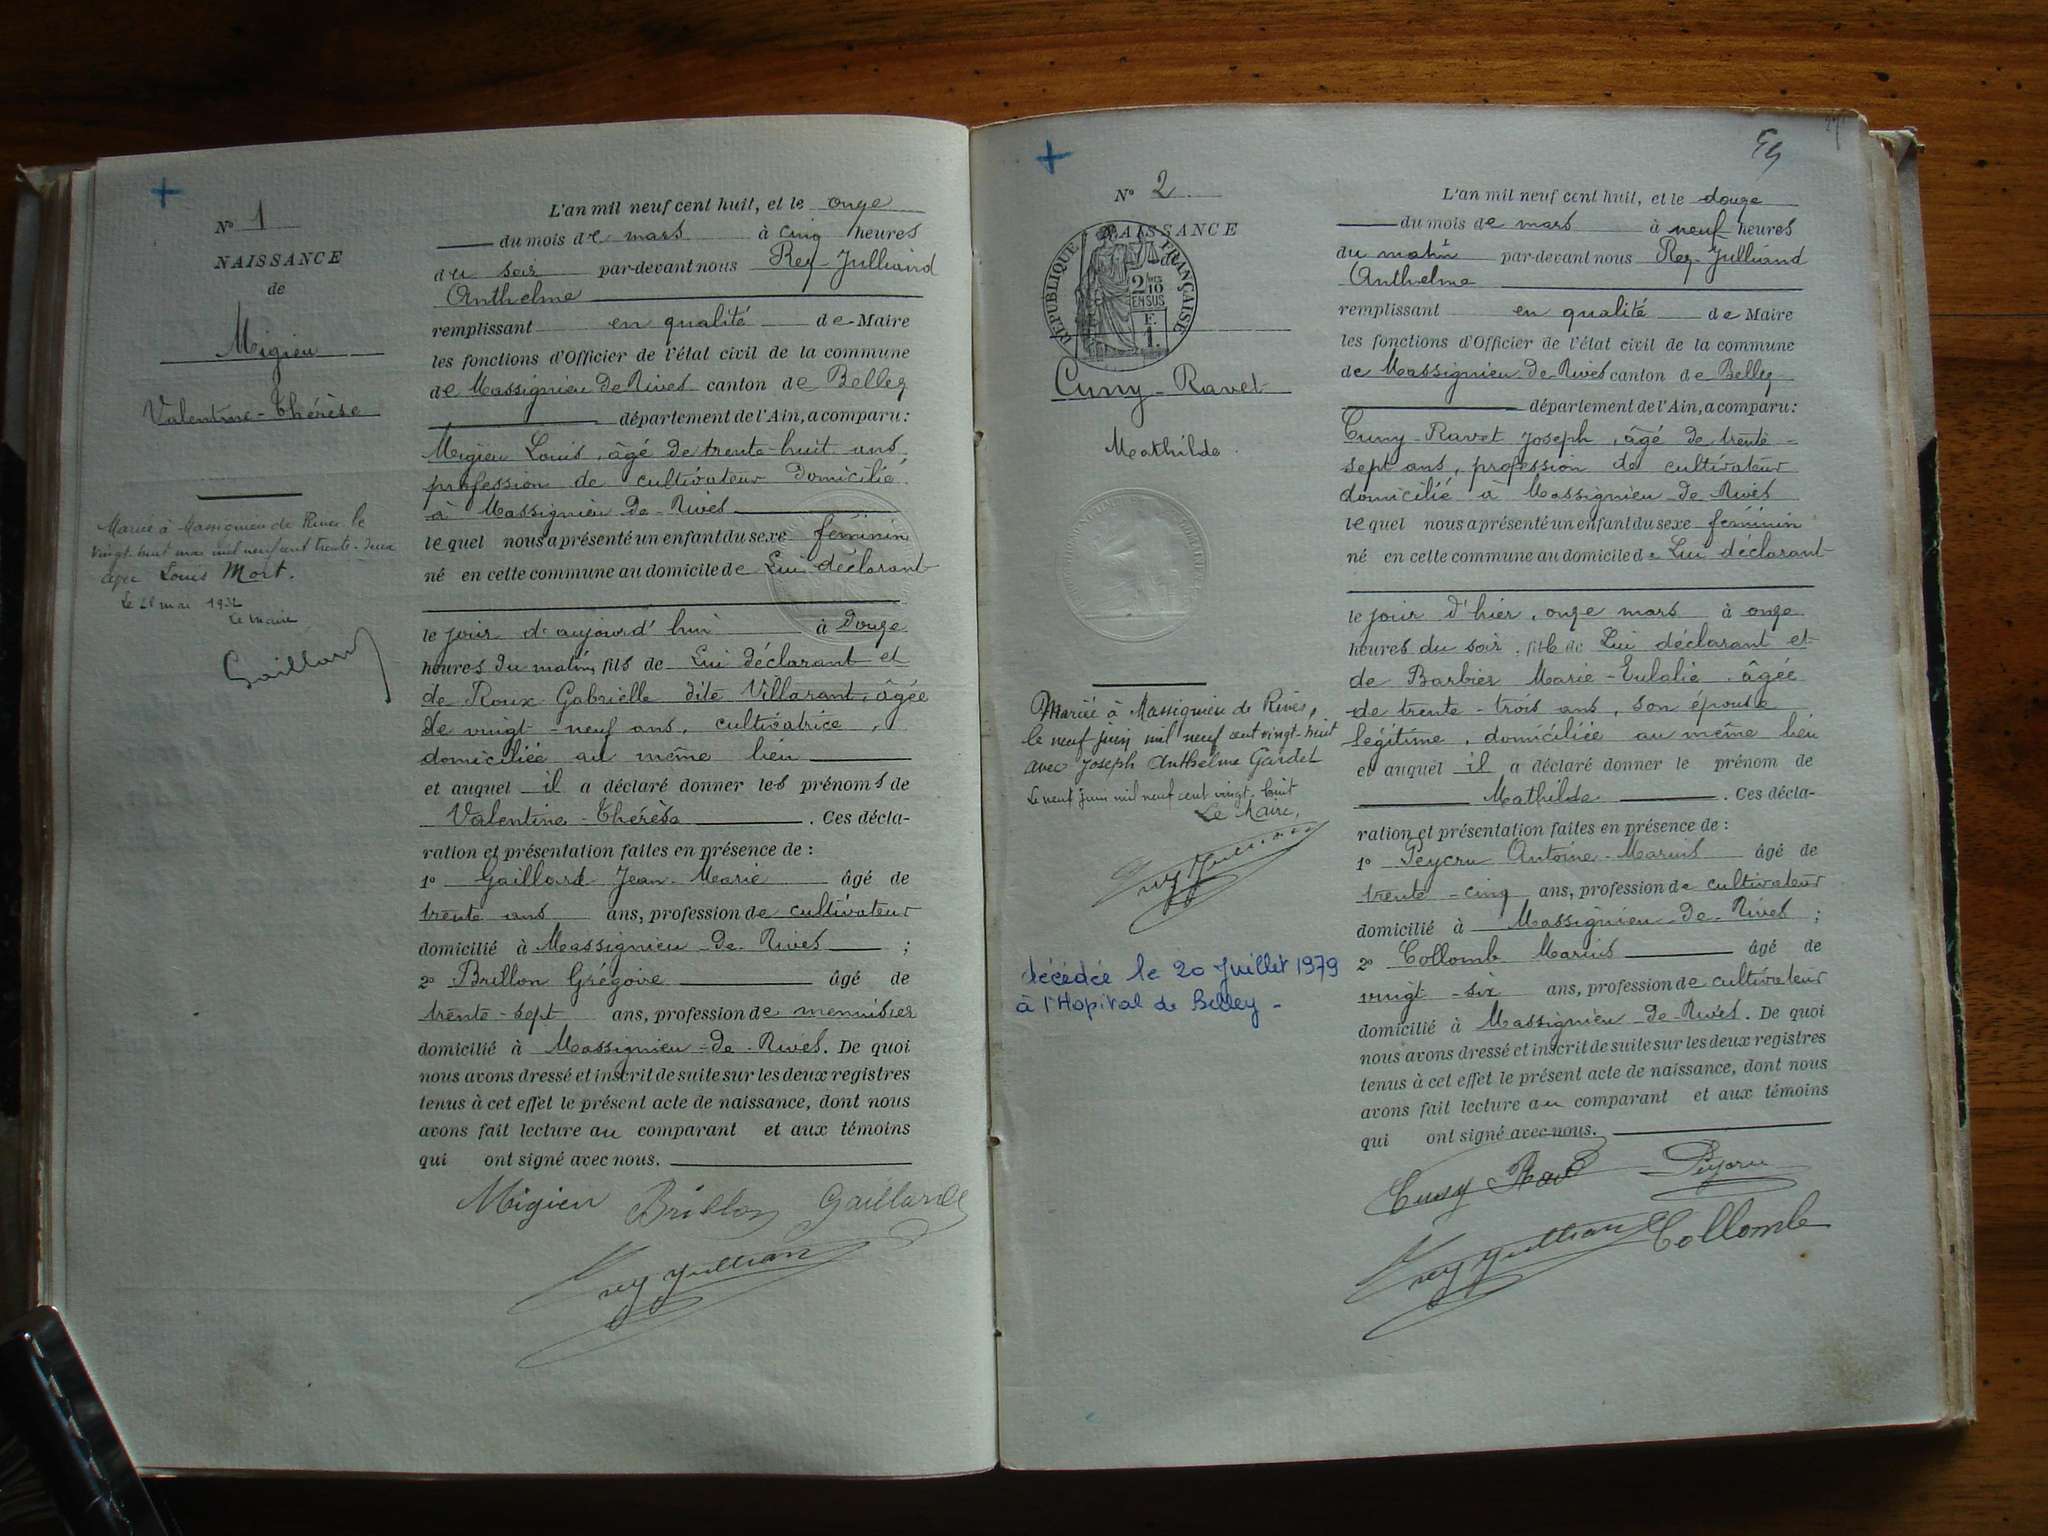 Nº 1
NAISSANCE
de
Migieu
Valentine-Thérèse
Mariée à Massignieu de Rives le
vingt-huit mai mil neuf cent trente-deux
avec Louis Mort.
Le 28 mai 1932
Le Maire
Gaillard
L'an mil neuf cent huit, et le onze
du mois de mars à cinq heures
du soir par-devant nous Rey-Julliand
Anthelme
remplissant en qualité de Maire
les fonctions d'Officier de l'état civil de la commune
de Massignieu de Rives canton de Belley
département de l'Ain, a comparu:
Migieu Louis, âgé de trente-huit ans
profession de cultivateur domicilié
à Massignieu-de-Rives
lequel nous a présenté un enfant du sexe féminin
né en cette commune au domicile de Lui déclarant
le jour d'aujourd'hui à douze
heures du matin, fils de Lui déclarant et
de Roux Gabrielle dite Villarant, âgée
de vingt-neuf ans, cultivatrice,
domiciliée au même lieu
et auquel il a déclaré donner les prénoms de
Valentine-Thérèse. Ces décla-
ration et présentation faites en présence de:
1º Gaillard Jean-Marie âgé de
trente ans ans, profession de cultivateur
domicilié à Massignieu-de-Rives;
2º Brillon Grégoire âgé de
trente-sept ans, profession de menuisier
domicilié à Massignieu-de-Rives. De quoi
nous avons dressé et inscrit de suite sur les deux registres
tenus à cet effet le présent acte de naissance, dont nous
avons fait lecture au comparant et aux témoins
qui ont signé avec nous.
Migieu Brillon Gaillard
Rey Jullian
54
Nº 2
NAISSANCE
RÉPUBLIQUE FRANÇAISE
2/10
EN SUS
F.
1.
Cuny-Ravet
Mathilde
Mariée à Massignieu de Rives,
le neuf juin mil neuf cent vingt-huit
avec Joseph Anthelme Gardet
Le neuf juin mil neuf cent vingt-huit
Le Maire,
décédée le 20 Juillet 1979
à l'Hopital de Belley -
L'an mil neuf cent huit, et le douze
du mois de mars à neuf heures
du matin par-devant nous Rey-Julliand
Anthelme
remplissant en qualité de Maire
les fonctions d'Officier de l'état civil de la commune
de Massignieu-de-Rives canton de Belley
département de l'Ain, a comparu:
Cuny-Ravet Joseph, âgé de trente-
sept ans, profession de cultivateur
domicilié à Massignieu de Rives
lequel nous a présenté un enfant du sexe féminin
né en cette commune au domicile de Lui déclarant
le jour d'hier, onze mars à onze
heures du soir, fille de Lui déclarant et
de Barbier Marie-Eulalie, âgée
de trente-trois ans, son épouse
légitime, domiciliée au même lieu
et auquel il a déclaré donner le prénom de
Mathilde. Ces décla-
ration et présentation faites en présence de:
1º Peycru Antoine-Marius âgé de
trente-cinq ans, profession de cultivateur
domicilié à Massignieu-de-Rives;
2º Collomb Marius âgé de
vingt-six ans, profession de cultivateur
domicilié à Massignieu-de-Rives. De quoi
nous avons dressé et inscrit de suite sur les deux registres
tenus à cet effet le présent acte de naissance, dont nous
avons fait lecture au comparant et aux témoins
qui ont signé avec nous.
Cuny Ravet Peycru
Rey Jullian Collomb